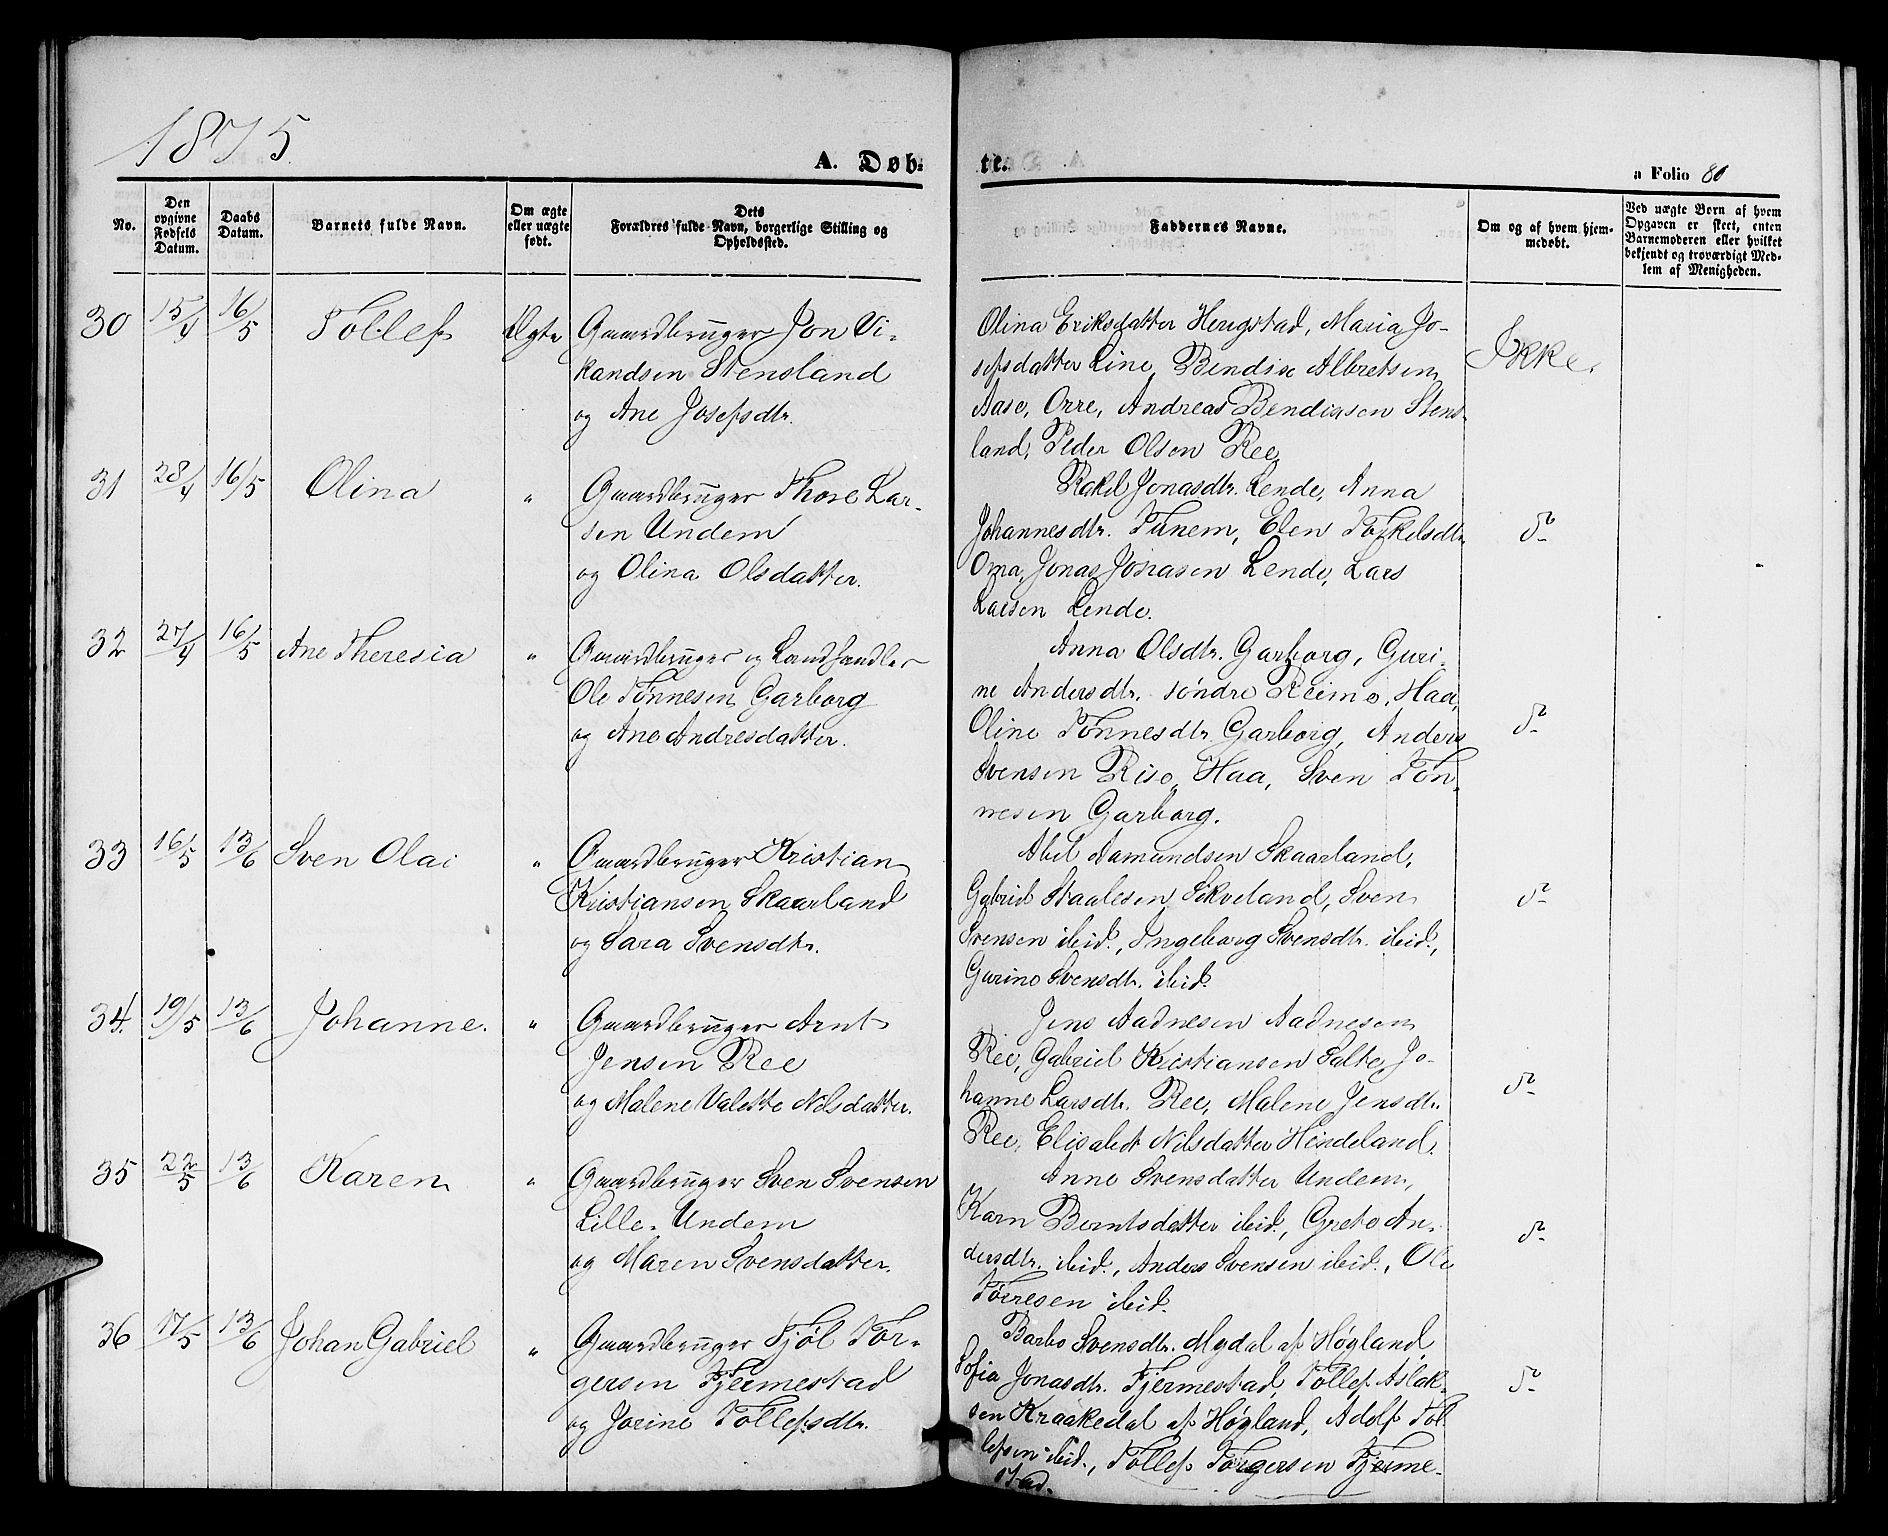 1875
A. Døb-
te.
a Folio 80
No.
Den opgivne Fødsels Datum.
Daabs Datum.
Barnets fulde Navn.
Om ægte eller uægte født.
Dets Forældres fulde Navn, borgerlige Stilling og Opholdssted.
Faddernes Navne.
Om og af hvem hjemmedøbt.
Ved uægte Børn af hvem Opgaven er skeet, enten Barnemoderen eller hvilket bekjendt og troværdigt Medlem af Menigheden.
30 15/4 16/5 Tollef Ægte Gaardbruger Jon Vi-
kandsen Stensland
og Ane Josefsdtr.
Olina Eriksdatter Herigstad, Maria Jo-
sefsdatter Line, Bendix Albretsen
Aase, Orre, Andreas Bendiksen Stens-
land, Peder Olsen Ree
Ikke.
31 28/4 16/5 Olina " Gaardbruger Thore Lar-
sen Undem
og Olina Olsdatter.
Rakel Jonasdtr. Lende, Anna
Johannesdtr. Tunem, Elen Torkelsdtr.
Oma, Jonas Jonasen Lende, Lars
Larsen Lende.
do
32 27/4 16/5 Ane Theresia " Gaardbruger og Landhandler
Ole Tønnesen Garborg
og Ane Andresdatter.
Anna Olsdtr. Garborg, Guri-
ne Andersdtr. søndre Reime, Haa,
Oline Tønnesdtr. Garborg, Anders
Svensen Rise, Haa, Sven Tøn-
nesen Garborg.
do
33 16/5 13/6 Sven Olai " Gaardbruger Kristian
Kristiansen Skaarland
og Sara Svensdtr.
Abel Aamundsen Skaarland,
Gabriel Staalesen Sikveland, Sven
Svensen ibid., Ingeborg Svensdtr. ibid.,
Gurine Svensdtr. ibid.
do
34. 19/5 13/6 Johanne. " Gaardbruger Arnt
Jensen Ree
og Malene Valette Nilsdatter.
Jens Aadnesen Aadnesen
Ree, Gabriel Kristiansen Salte, Jo-
hanne Larsdtr. Ree, Malene Jensdtr.
Ree, Elisabet Nilsdatter Hindeland.
do
35 22/5 13/6 Karen " Gaardbruger Sven Svensen
Lille-Undem
og Maren Svensdatter.
Anne Svensdatter Undem,
Karn Berntsdatter ibid., Grete An-
dersdtr. ibid., Anders Svensen ibid., Ole
Torresen ibid.
do
36 17/5 13/6 Johan Gabriel " Gaardbruger Fjøl Tor-
gersen Fjermestad
og Jorine Tollefsdtr.
Barbo Svensdtr. Mydal af Høgland,
Sofia Jonasdtr. Fjermestad, Tollef Aslak-
sen Kraakedal af Høgland, Adolf Tol-
lefsen ibid., Tollef Torgersen Fjerme-
stad.
do